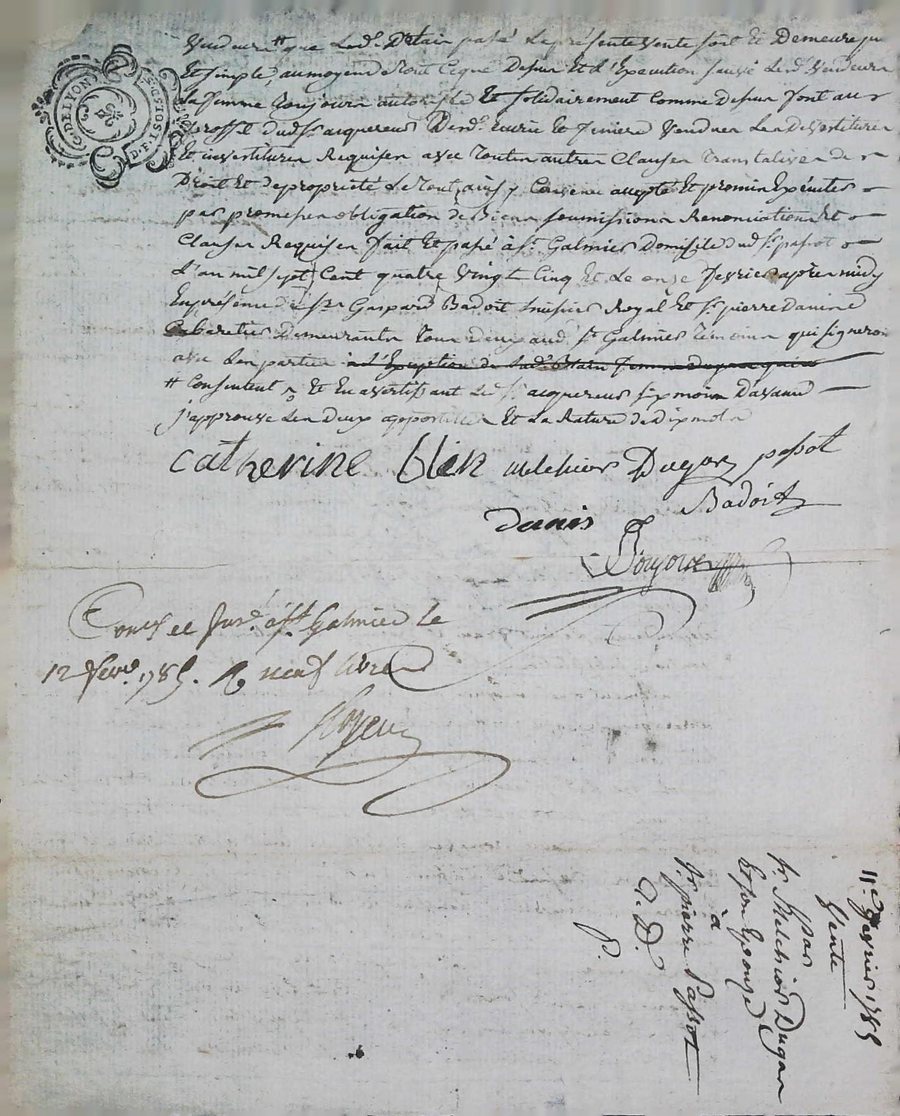 G. DE LYON
2 S.
Vendeurs # que led. Delai passé la présente vente soit et demeure pu
et simple, au moyen de tout ce que dessus et à l'Execution dusdé les d. vendeurs
sa femme toujours autorisée et solidairement comme dessus font au
proffit dud. Sr. acquereur desd. Ecurie et feniere vendues les devestitures
et investitures Requises avec toutes autres Clauses translatives de
Droit et de propriété le tout ainsy Convenu accepté et promis Exécuter
par promesses obligation de Biens soumissions Renonciations et
Clauses Requises fait et passé à St. Galmier Domicile dud. Sr. passot
L'an mil sept Cent quatre vingt Cinq et le onze fevrier après midy
En présence de Sr. Gaspard Badoit huissier Royal et Sr. pierre Danis
Cabaretier Demeurants tous deux aud. St. Galmier temoins qui signeront
avec les parties
# Consentent, et en avertissant led. Sr. acquereur six mois D'avance
J'approuve les deux apostilles et la Rature de dix mots
catherine blein melchior Dugas passot
Badoit
danis
Conlé et Jnsé. à St. Galmier le
12 fevr. 1785. R. neuf livres
11e. fevrier 1785
Vente
par
Sr. Melchior Dugas
Et son Epouze
à
Sr. pierre Passot
P.